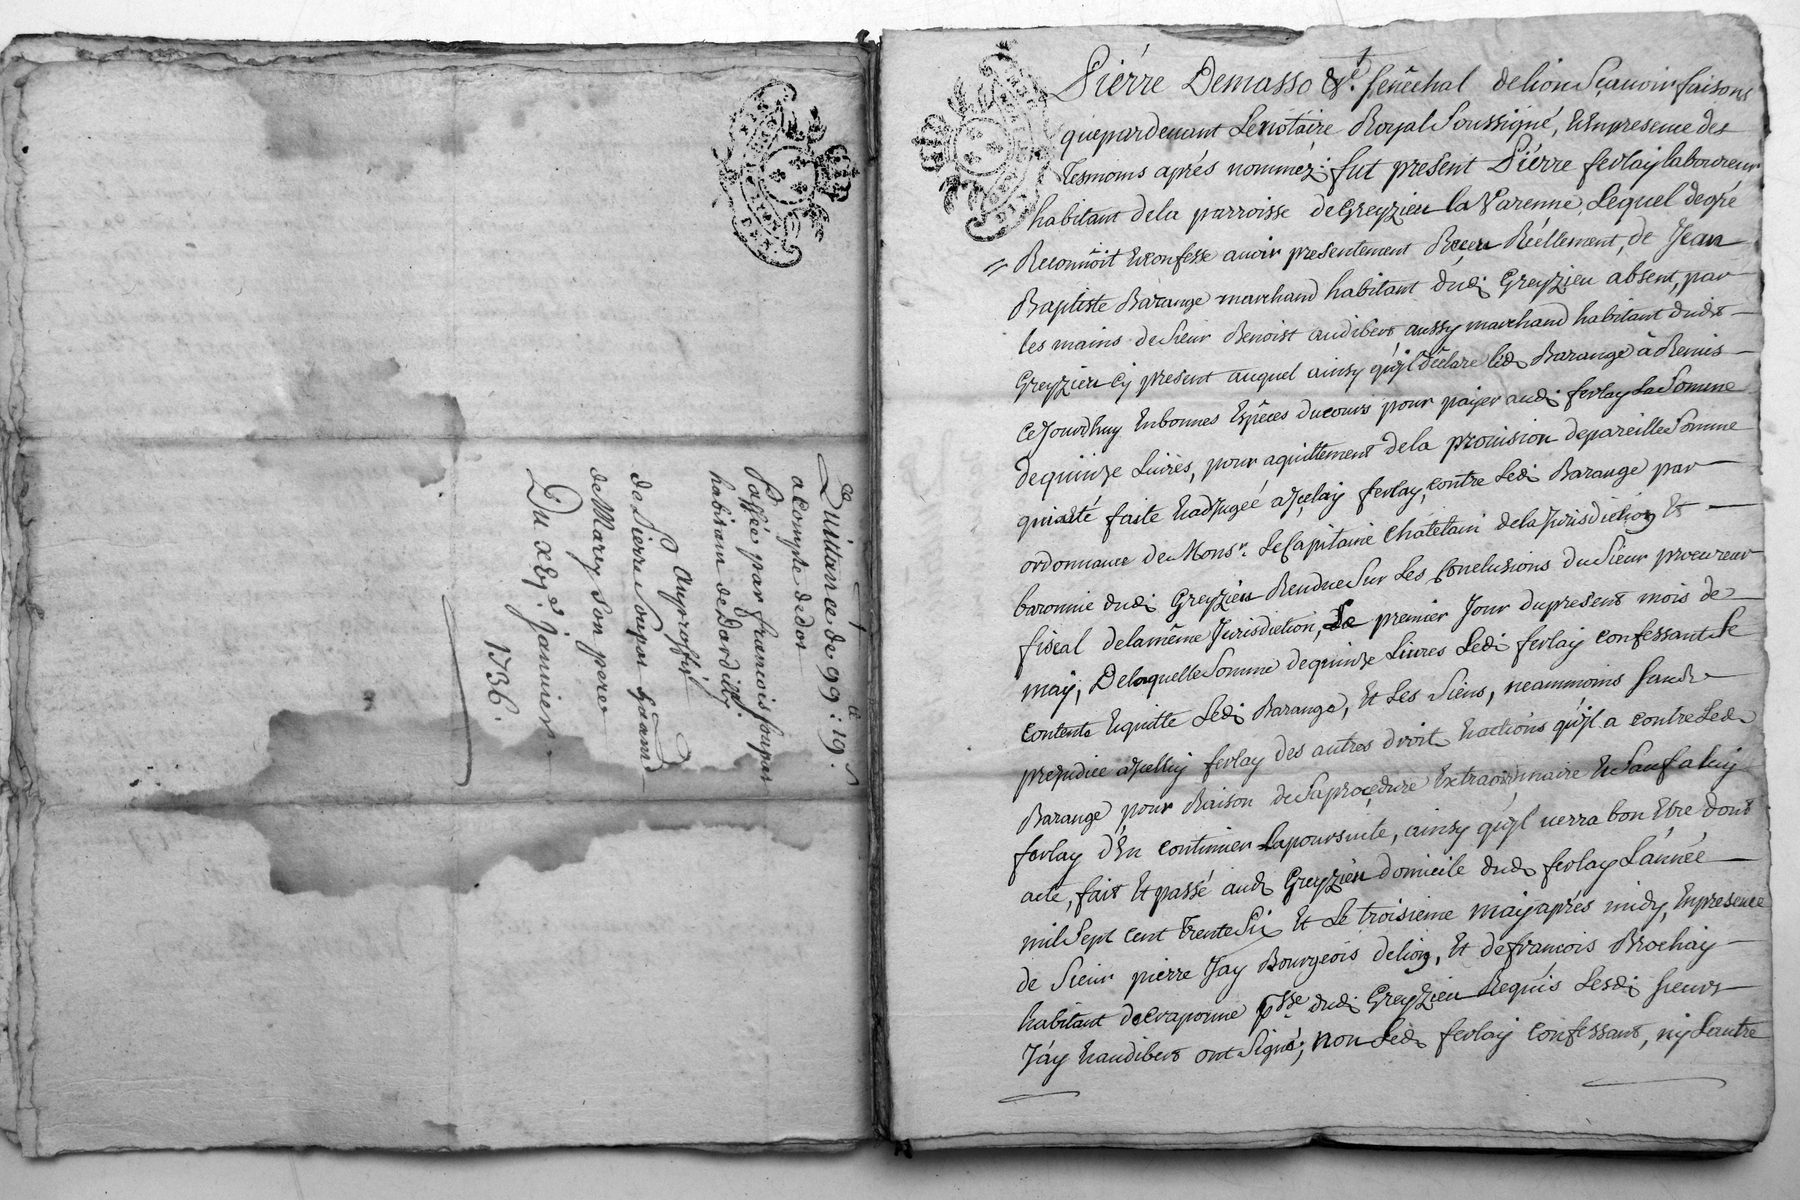 Quittance de 99: 19.
a Compte de dot
Passée par francois soupat
habitant de Dardilly.
Au proffit
de Pierre soupat Gd
de Marcy son perre
Du xxi.e Janvier
1736.
Pierre Demasso &.a senêchal de lion Sçavoir faisons
que pardevant Le notaire Royal Soussigné, Et En presence des
Tesmoins aprés nommez fut present Pierre ferlay laboureur
habitant dela parroisse de Greyzieu la Varenne, Lequel de gré
Reconnôit Et confesse avoir presentement Receu Réellement, de Jean
Baptiste Barange marchand habitant dudi Greyzieu absent, par
les mains de Sieur Benoist audibert aussy marchand habitant dudit
Greyzieu cy present auquel ainsy qu'jl dêclare ledi Barange à Remis
Ce Jourdhuy En bonnes Espêces du cours pour païer audi ferlay La Somme
de quinze Livres, pour aquittement de la provision de pareille Somme
qui a êté faite Et adjugée a jçelay ferlay, contre Ledi Barange par
ordonnance de Monsr. Le Capitaine Chatelain de la Jurisdiction Et
baronnie dudi Greyzieu Rendue Sur Les Conclusions du Sieur procureur
fiscal de la même Jurisdiction, Le premier Jour du present mois de
may, De laquelle Somme de quinze Livres Ledi ferlay confessant Se
contente Et quitte Ledi Barange, Et Les Siens, neammoins sans
prejudice a jcelluy ferlay des autres droit Et actions qu'jl a contre Ledi
Barange pour Raison de Sa proçedure Extraordinaire Et Sauf a luy
ferlay d'En continuer La poursuite, ainsy qu'jl verra bon Etre dont
acte, fait Et passé audi Greyzieu domicile dudi ferlay L'année
mil Sept cent Trente Six Et Le troisieme may aprés midy, En presence
de Sieur pierre Jay Bourgeois de lion, Et de francois Brochay
habitant de Craponne psse dudi Greyzieu Requis Lesdi sieurs
Jay Et audibert ont Signé, non Ledi ferlay confessant, ny L'autre